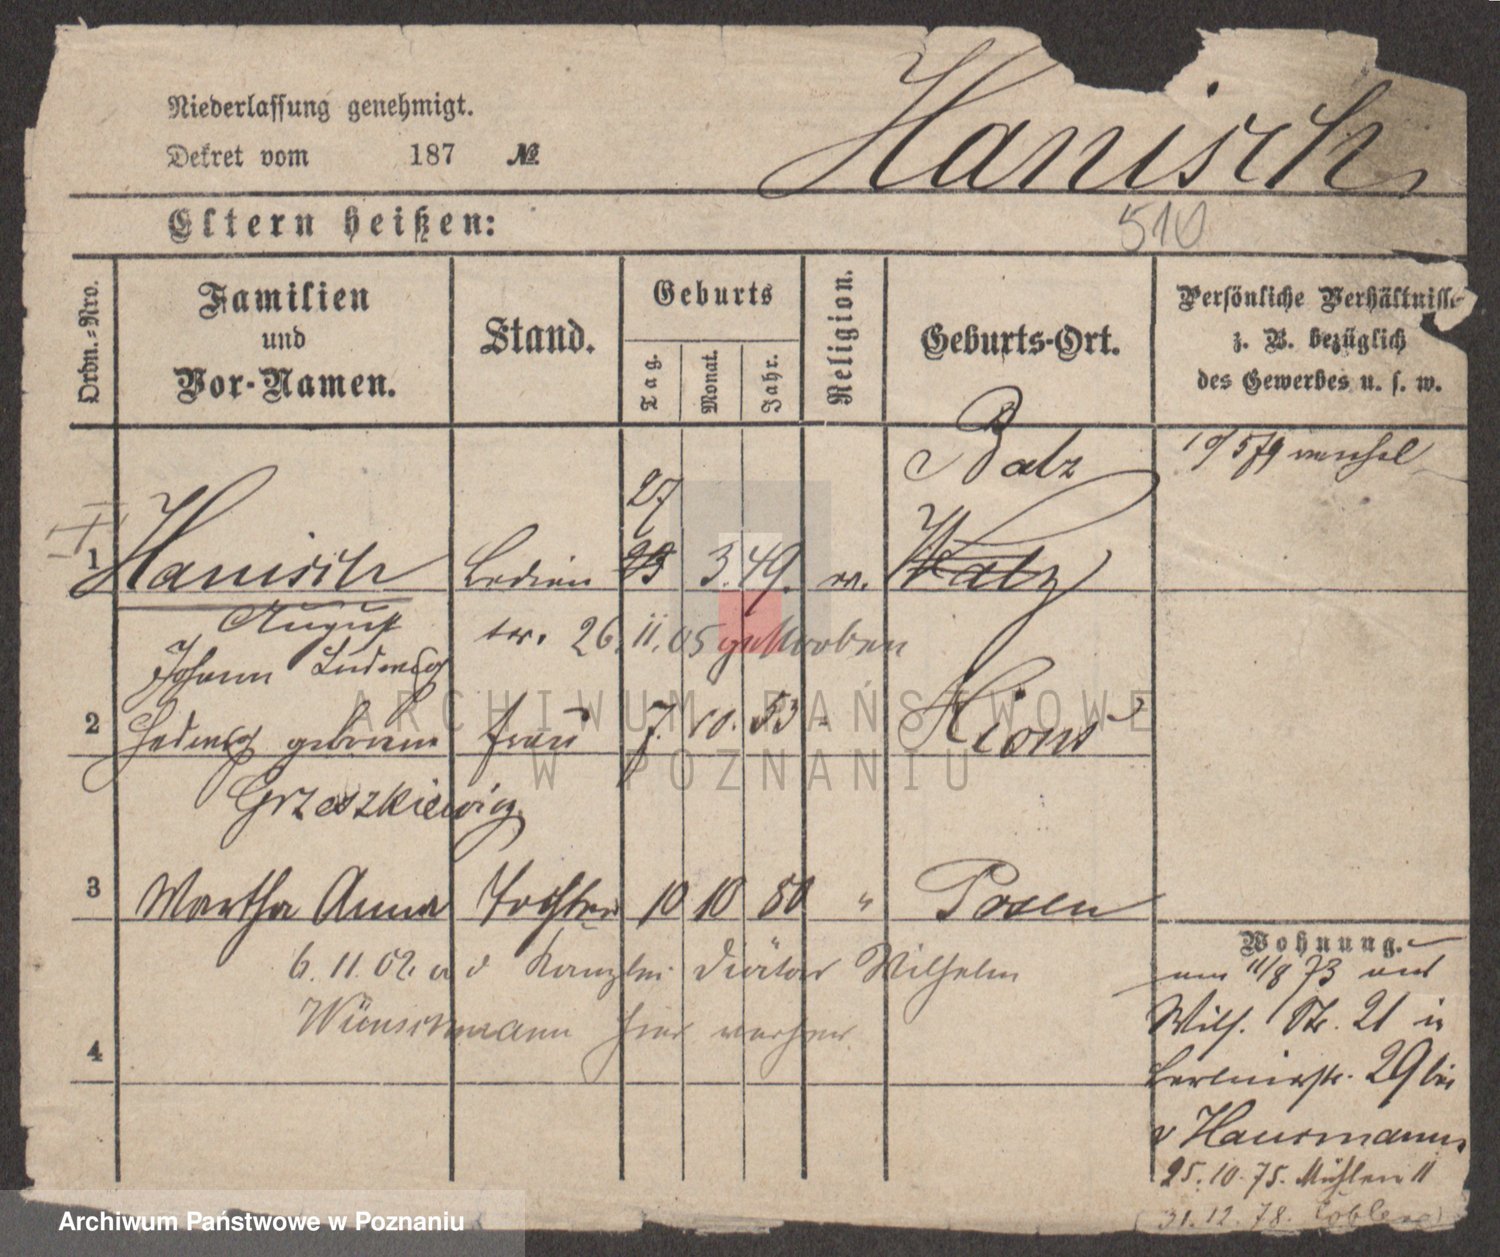 Niederlassung genehmigt.
Dekret vom 187 №
Hanisch
510
Eltern heißen:
Ordn.-Nro.
Familien
und
Vor-Namen.
Stand.
Geburts
Tag.
Monat.
Jahr.
Religion.
Geburts-Ort.
Persönliche Verhältnisse
z. B. bezüglich
des Gewerbes u. s. w.
Batz
27
1 Hanisch Bedien 23 3. 49. ev. Watz
August ter. 26.11.05 gestorben
Johann Ludwig
2 Hedwig geborene Frau 7. 10. 53 Xions
Grzeszkiewicz
3 Martha Anna Tochter 10 10 80 " Posen
6.11.02 Kanzlei Diätar Wilhelm
Wünschmann hier
4
Wohnung.
11/8 73 aus
Wilh. Str. 21 in
Berlinerstr. 29 bei
v Hausmann
25.10.75. Mühlen 11
31.12.78.
ARCHIWUM PAŃSTWOWE
W POZNANIU
Archiwum Państwowe w Poznaniu